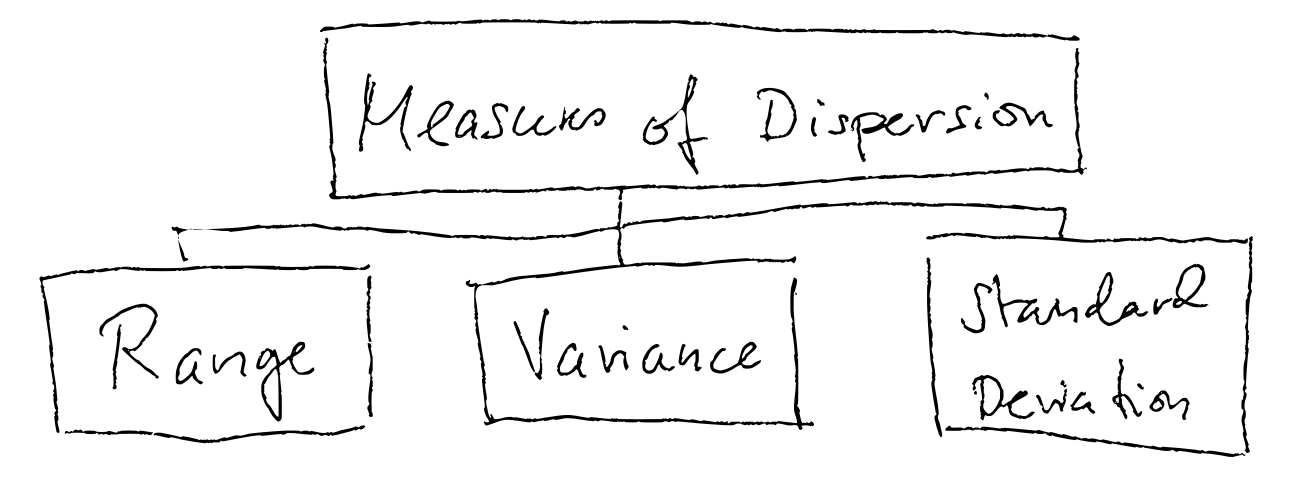 Measures of Dispersion
Range
Variance
Standard
Deviation